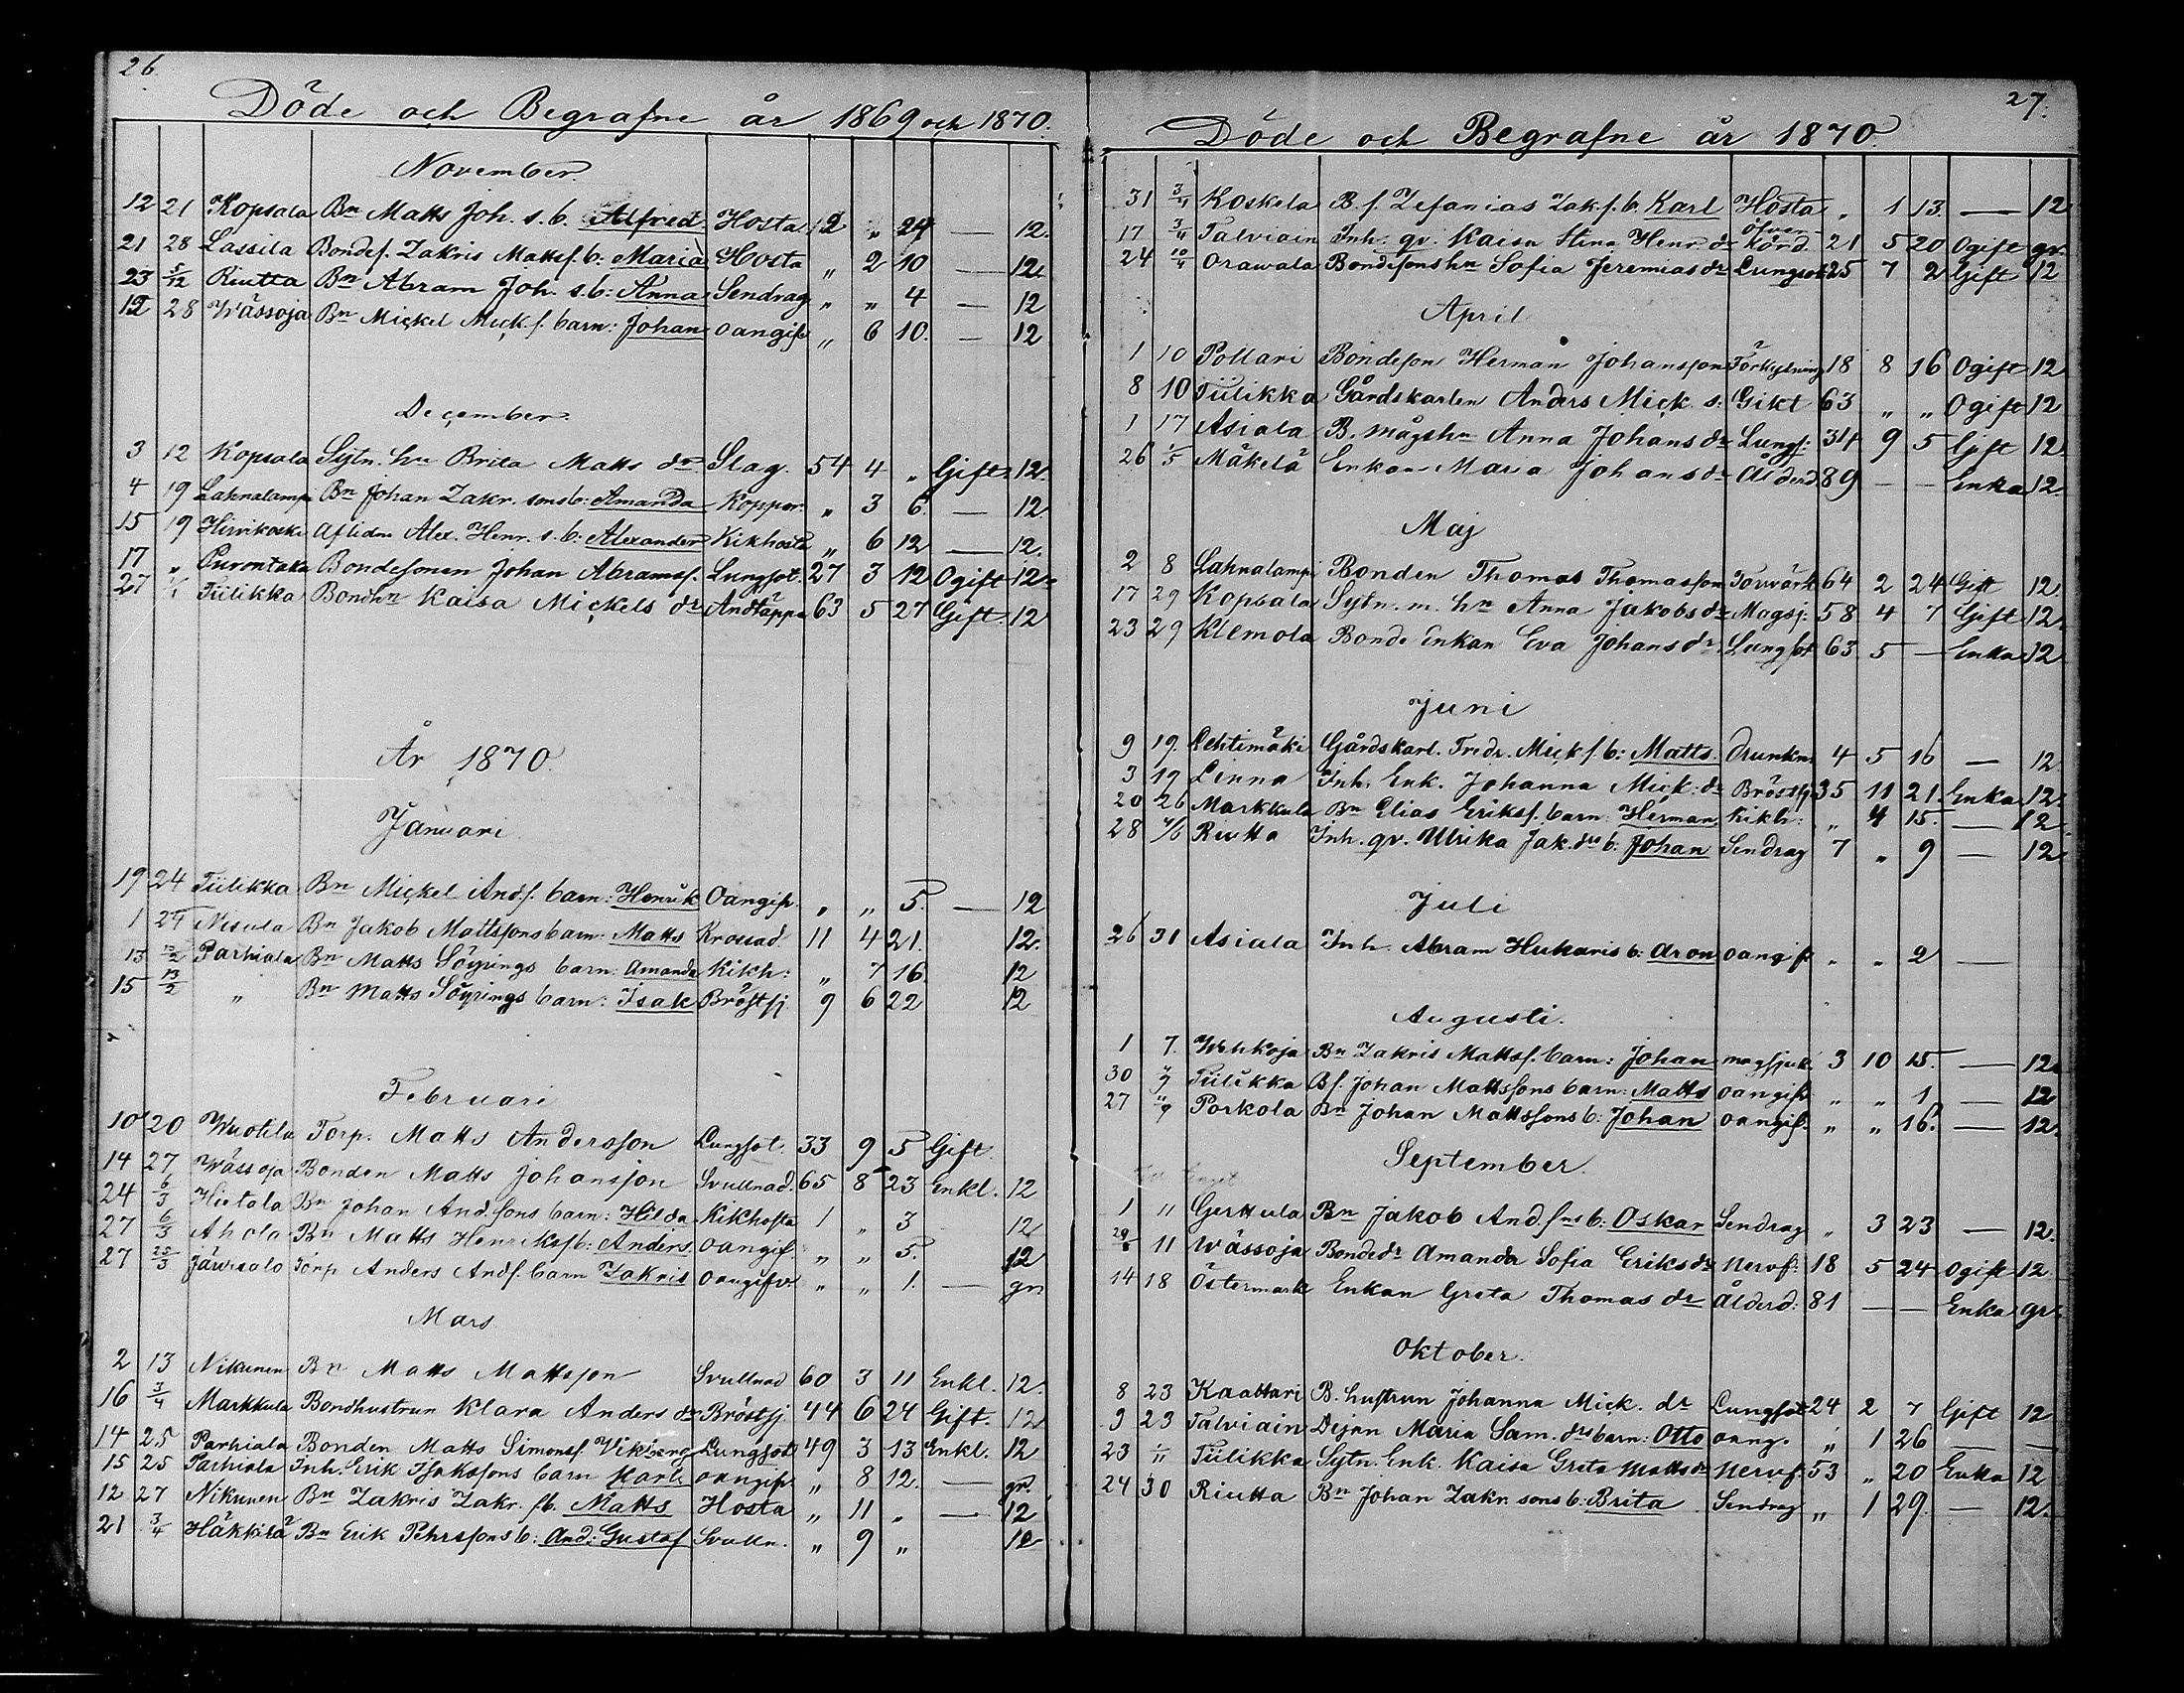 26.
Döde och Begrafne år 1869 och 1870.
November.
12 21 Kopsala Bn Matts Joh. s. b. Alfred Hosta 12 „ 24 — 12.
21 28 Lassila Bondes. Zakris Mattss. b: Maria Hosta „ 2 10 — 12.
23 5/12 Riutta Bn Abram Joh. s. b: Anna Sendrag „ „ 4 — 12
12 28 Wässoja Bn Mickel Mick. s. barn: Johan oangifv „ 6 10. — 12
December.
3 12 Kopsala Sytn. hu Brita Matts dr Slag. 54 4 „ Gift 12.
4 19 Lahnalampi Bn Johan Zakr. sons b: Amanda Koppor. „ 3 6. — 12.
15 19 Hirvikoski Aflidne Alex. Henr. s. b: Alexander Kikhosta „ 6 12 — 12.
17 „ Purontaka Bondesonen Johan Abramss. Lungsot. 27 3 12 Ogift 12.
27 1/1 Tiilikka Bondhn Kaisa Mickels dr Andtäppa 63 5 27 Gift. 12
År 1870.
Januari
19 24 Tiilikka Bn Mickel And.s. barn: Henrik Oangifv. „ „ 5. — 12
1 24 Nisula Bn Jakob Mattssons barn: Matts Krossad 11 4 21. 12.
13 13/2 Parhiala Bn Matts Söyrings barn: Amanda Kikh: „ 7 16. 12
15 13/2 „ Bn Matts Söyrings barn: Isak Bröstsj. 9 6 22 12
Februari
10 20 Wuotila Torp. Matts Andersson Lungsot. 33 9 5 Gift.
14 27 Wässoja Bonden Matts Johansson Svullnad. 65 8 23 Enkl. 12
24 6/3 Hietala Bn Johan And.sons barn: Hilda Kikhosta 1 „ 3 12
27 6/3 Ahola Bn Matts Henrikss b: Anders oangif „ „ 5. 12
27 25/3 Torp Anders Ands. barn Zakris oangifv. „ „ 1. — gr
Mars
2 13 Nikunen Bn Matts Mattsson Svullnad 60 3 11 Enkl. 12.
16 3/4 Markkula Bondhustrun Klara Anders dr Bröstsj. 44 6 24 Gift. 12
14 25 Parhiala Bonden Matts Simonss. Vikberg Lungsot 49 3 13 Enkl. 12
15 25 Parhiala Inh. Erik Isakssons barn Karl. oangifv „ 8 12. — gr.
12 27 Nikunen Bn Zakris Zakr. sb. Matts Hosta „ 11 „ — 12
21 3/4 Häkkilä Bn Erik Pehrssons b: And: Gustaf Svulln. „ 9 „ 12
27.
Döde och Begrafne år 1870.
31 3/4 Koskela B. s. Zefanias Zak.s. b. Karl Hosta „ 1 13. — 12
17 3/4 Talviain Inh. qv. Kaisa Stina Henr. dr öfverkörd. 21 5 20 Ogift gr.
24 10/4 Orawala Bondesonshn Sofia Jeremias dr Lungsot 25 7 2 Gift 12
April
1 10 Pollari Bondeson Herman Johansson Förkylning 18 8 16 Ogift 12
8 10 Tiilikka Gårdskarlen Anders Mick. s. Gikt 63 „ „ Ogift 12
1 17 Asiala B. mågshn Anna Johans dr Lungs: 34 9 5 Gift 12.
26 1/5 Mäkelä Enkan Maria Johans dr Ålderd. 89 — — Enka 12
Maj
2 8 Lahnalampi Bonden Thomas Thomasson Torrvärk 64 2 24 Gift 12.
17 29 Kopsala Sytn. m. hn Anna Jakobs dr Magsj: 58 4 7 Gift 12.
23 29 Klemola Bonde enkan Eva Johans dr Lungsot 63 5 — Enka 12
Juni
9 19. Lehtimäki Gårdskarl. Fredr. Mick s. b: Matts. drunkn. 4 5 16 — 12
3 19 Linna Inh. Enk. Johanna Mick: dr Bröstsj 35 11 21. Enka 12.
20 26 Markkula Bn Elias Erikss. barn: Herman Kikh: „ 4 15. — 12
28 4/6 Riutta Inh. qv. Ulrika Jak. drs b: Johan Sendrag 7 „ 9 — 12.
Juli
26 31 Asiala Inh. Abram Hukaris b: Aron oangif „ „ 2 —
Augusti.
1 7. Wehkoja Bn Zakris Mattss. barn: Johan magsjuk 3 10 15. — 12.
30 4/9 Tiilikka Bs. Johan Mattssons barn: Matts oangif „ „ 1 — 12
27 11/9 Porkola Bn Johan Mattssons b: Johan oangif. „ „ 16. — 12.
September.
1 11 Gerttula Bn Jakob And. sns b: Oskar Sendrag „ 3 23 — 12.
29/8 11 Wässoja Bondedr Amanda Sofia Eriks dr Nervf: 18 5 24 Ogift 12
14 18 Östermark Enkan Greta Thomas dr Ålderd: 81 — — Enka gr.
Oktober.
8 23 Kaattari B. hustrun Johanna Mick. dr Lungsot 24 2 7 Gift 12
9 23 Talviain Dejan Maria Sam. drs barn: Otto oang. „ 1 26 — —
23 1/11 Tiilikka Sytn. Enk. Kaisa Greta Matts dr Nervf. 53 „ 20 Enka 12
24 30 Riutta Bn Johan Zakr. sons b: Brita Sendrag „ 1 29. — 12.